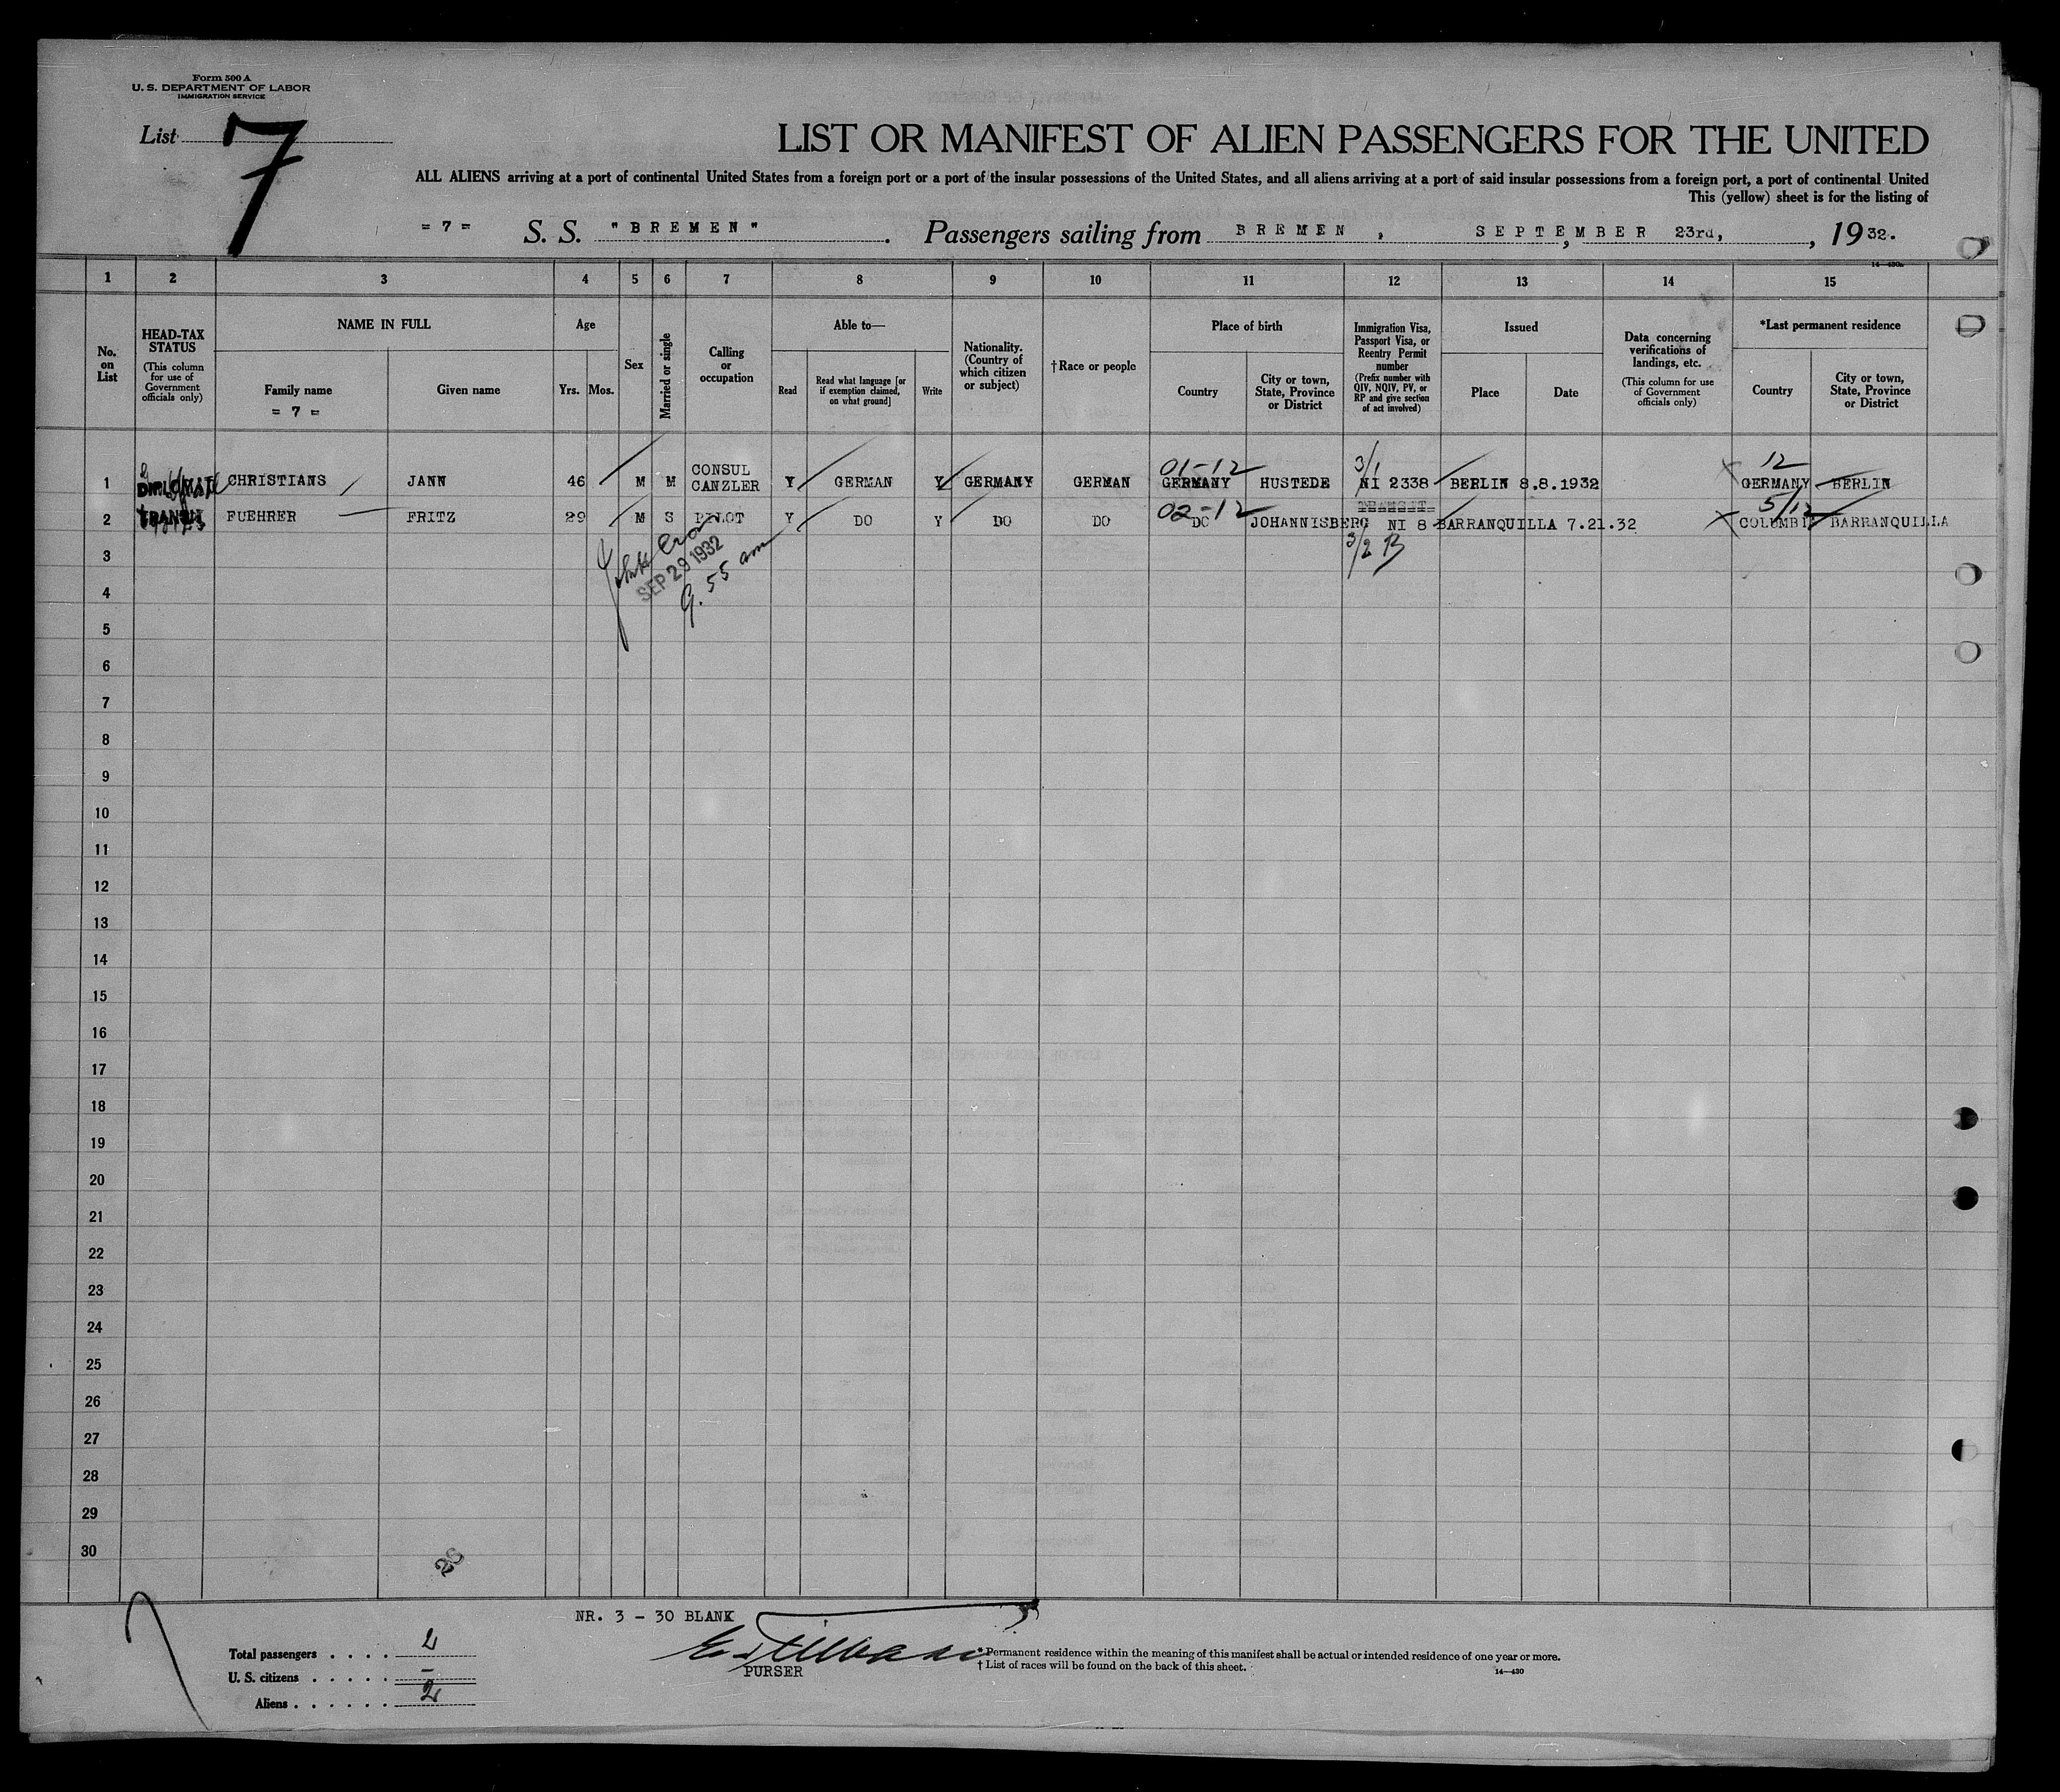 Form 500 A
U. S. DEPARTMENT OF LABOR
IMMIGRATION SERVICE
List 7
LIST OR MANIFEST OF ALIEN PASSENGERS FOR THE UNITED
ALL ALIENS arriving at a port of continental United States from a foreign port or a port of the insular possessions of the United States, and all aliens arriving at a port of said insular possessions from a foreign port, a port of continental United
This (yellow) sheet is for the listing of
= 7 = S. S. "BREMEN". Passengers sailing from BREMEN, SEPTEMBER 23rd, , 1932.
14—430a
1 2 3 4 5 6 7 8 9 10 11 12 13 14 15
No. on List
HEAD-TAX STATUS
(This column for use of Government officials only)
NAME IN FULL
Family name
= 7 =
Given name
Age
Yrs. Mos.
Sex
Married or single
Calling or occupation
Able to—
Read
Read what language [or if exemption claimed, on what ground]
Write
Nationality. (Country of which citizen or subject)
†Race or people
Place of birth
Country
City or town, State, Province or District
Immigration Visa, Passport Visa, or Reentry Permit number
(Prefix number with QIV, NQIV, PV, or RP and give section of act involved)
Issued
Place
Date
Data concerning verifications of landings, etc.
(This column for use of Government officials only)
*Last permanent residence
Country
City or town, State, Province or District
01-12 3/1 12
1 DIPLOMAT CHRISTIANS JANN 46 M M CONSUL CANZLER Y GERMAN Y GERMANY GERMAN GERMANY HUSTEDE NI 2338 BERLIN 8.8.1932 GERMANY BERLIN
02-12 TRANSIT 5/12
2 TRANSIT FUEHRER FRITZ 29 M S PILOT Y DO Y DO DO DO JOHANNISBERG NI 8 BARRANQUILLA 7.21.32 COLUMBIA BARRANQUILLA
3/2 B
SEP 29 1932
9.55 am
3
4
5
6
7
8
9
10
11
12
13
14
15
16
17
18
19
20
21
22
23
24
25
26
27
28
29
30
NR. 3 - 30 BLANK
PURSER
Total passengers . . . . 2
U. S. citizens . . . . . —
Aliens . . . . . . 2
* Permanent residence within the meaning of this manifest shall be actual or intended residence of one year or more.
† List of races will be found on the back of this sheet.
14—430